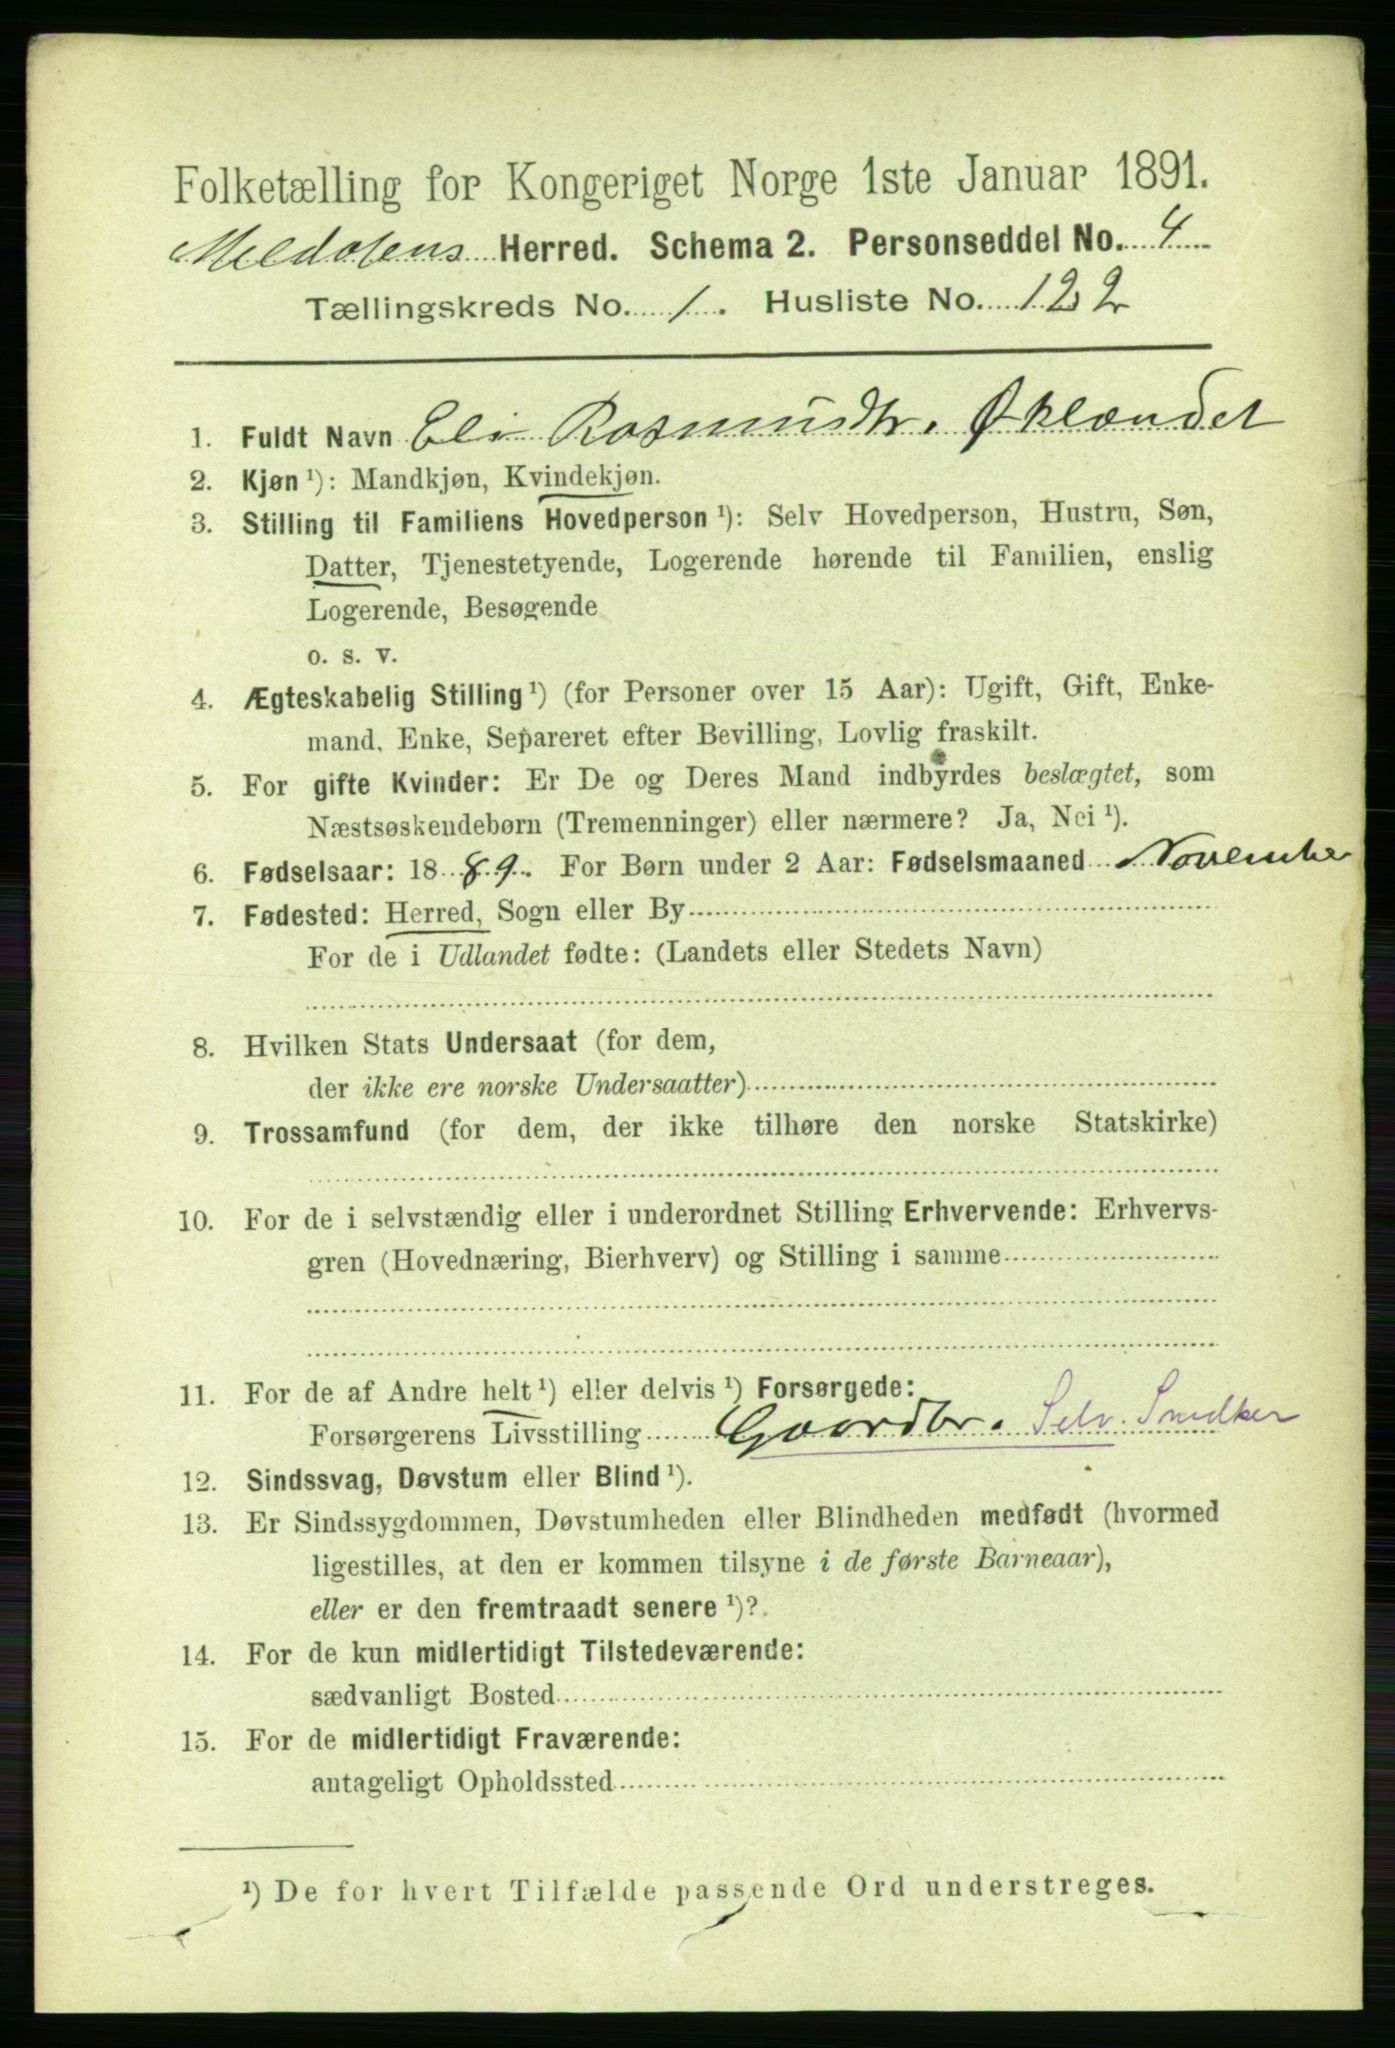 Folketælling for Kongeriget Norge 1ste Januar 1891.
Meldalens Herred. Schema 2. Personseddel No. 4
Tællingskreds No. 1. Husliste No. 122
1. Fuldt Navn Eli Rasmusdtr. Øklændet
2. Kjøn ¹): Mandkjøn, Kvindekjøn.
3. Stilling til Familiens Hovedperson ¹): Selv Hovedperson, Hustru, Søn,
Datter, Tjenestetyende, Logerende hørende til Familien, enslig
Logerende, Besøgende
o. s. v.
4. Ægteskabelig Stilling ¹) (for Personer over 15 Aar): Ugift, Gift, Enke-
mand, Enke, Separeret efter Bevilling, Lovlig fraskilt.
5. For gifte Kvinder: Er De og Deres Mand indbyrdes beslægtet, som
Næstsøskendebørn (Tremenninger) eller nærmere? Ja, Nei ¹).
6. Fødselsaar: 1889. For Børn under 2 Aar: Fødselsmaaned November
7. Fødested: Herred, Sogn eller By
For de i Udlandet fødte: (Landets eller Stedets Navn)
8. Hvilken Stats Undersaat (for dem,
der ikke ere norske Undersaatter)
9. Trossamfund (for dem, der ikke tilhøre den norske Statskirke)
10. For de i selvstændig eller i underordnet Stilling Erhvervende: Erhvervs-
gren (Hovednæring, Bierhverv) og Stilling i samme
11. For de af Andre helt ¹) eller delvis ¹) Forsørgede:
Forsørgerens Livsstilling Gaardbr. Selv. Snedker
12. Sindssvag, Døvstum eller Blind ¹).
13. Er Sindssygdommen, Døvstumheden eller Blindheden medfødt (hvormed
ligestilles, at den er kommen tilsyne i de første Barneaar),
eller er den fremtraadt senere ¹)?
14. For de kun midlertidigt Tilstedeværende:
sædvanligt Bosted
15. For de midlertidigt Fraværende:
antageligt Opholdssted
¹) De for hvert Tilfælde passende Ord understreges.